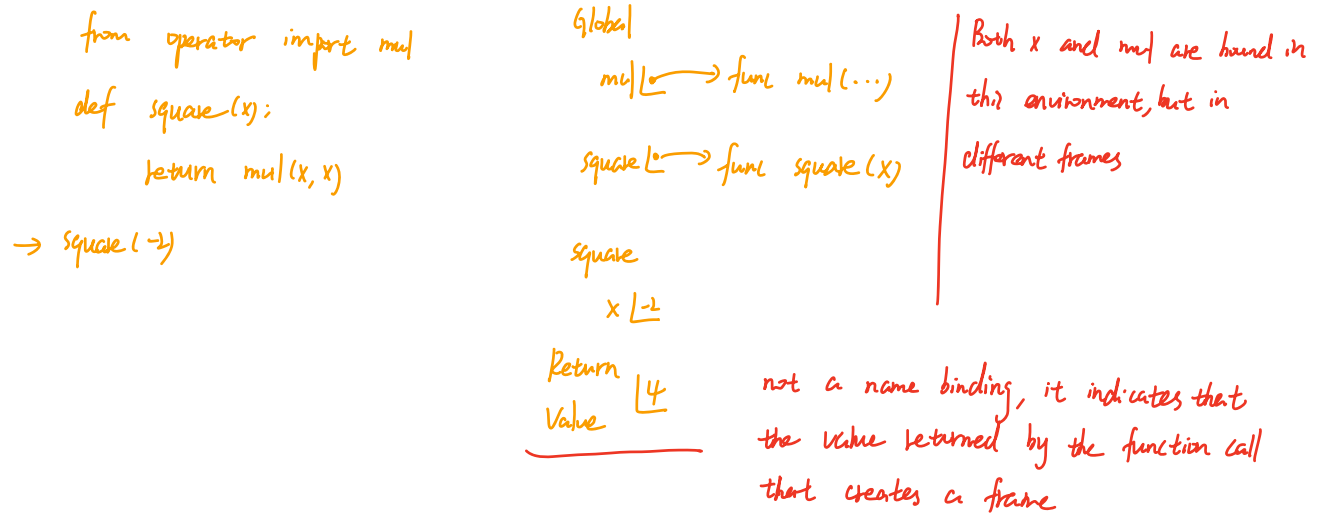 from operator import mul
def square(x):
return mul(x, x)
→ square(-2)
Global
mul → func mul(...)
square → func square(x)
square
x -2
Return
Value 4
Both x and mul are bound in
this environment, but in
different frames
not a name binding, it indicates that
the value returned by the function call
that creates a frame